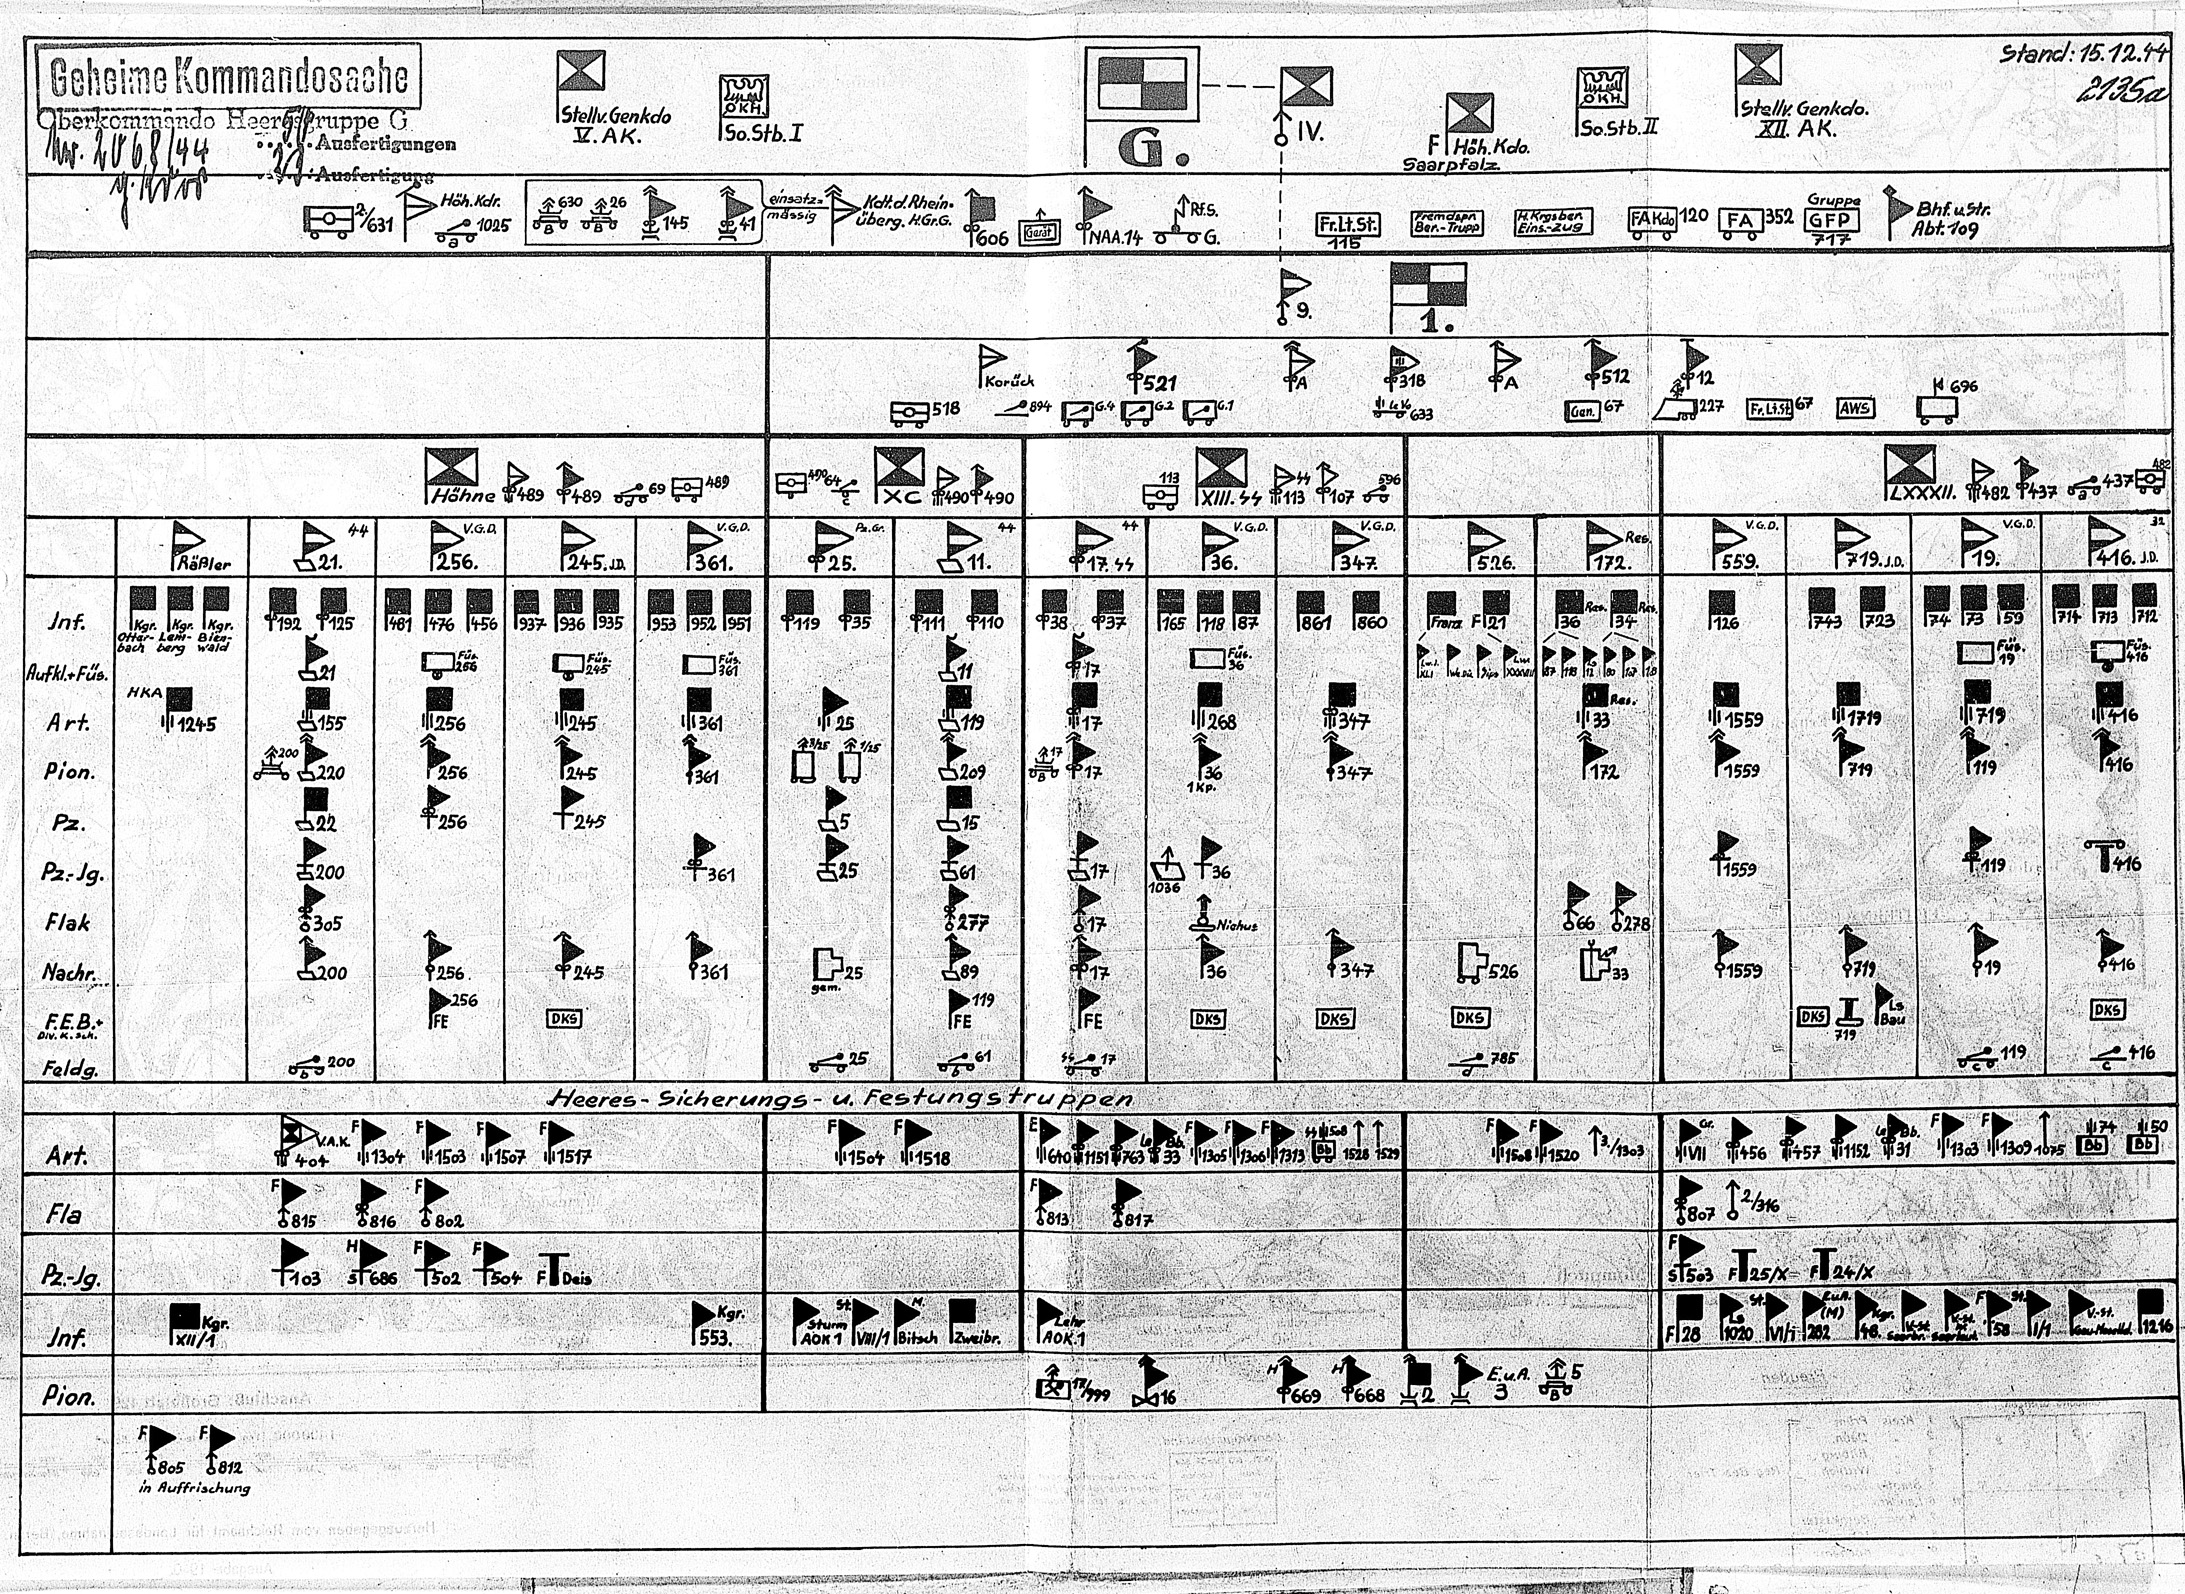 Geheime Kommandosache
Oberkommando Heeresgruppe G
Nr. 2068/44
Ausfertigungen
Ausfertigung
Stellv. Genkdo
V. AK.
OKH.
So.Stb. I
G.
IV.
F Höh. Kdo.
Saarpfalz.
OKH
So.Stb. II
Stellv. Genkdo.
XII. AK.
Stand: 15.12.44
2135a
2/631
Höh. Kdr.
1025
a
630
B
26
B
145
41
einsatz=
mässig
Kdt.d.Rhein-
überg. H.Gr.G.
606
Gerät
NAA.14
Rf.S.
G.
Fr.Lt.St.
115
Fremdspr
Ber.-Trupp
H.Krgsber.
Eins.-Zug
FA Kdo 120
FA 352
Gruppe
GFP
717
Bhf.u.Str.
Abt.109
9.
1.
Korück
521
A
318
A
512
12
518
894
G.4
G.2
G.1
633
Gen. 67
227
Fr.Lt.St 67
AWS
696
Höhne
489
489
69
d
489
490
64
c
XC
490
490
113
XIII. SS
SS
113
107
596
LXXXII.
482
437
a
437
482
Räßler
44
21.
V.G.D.
256.
245. J.D.
V.G.D.
361.
Pz.Gr.
25.
44
11.
44
17. SS
V.G.D.
36.
V.G.D.
347.
526.
Res.
172.
V.G.D.
559.
719. J.D.
V.G.D.
19.
32
416. J.D.
Jnf.
Kgr. Kgr. Kgr.
Otter- Lem- Bien-
bach berg wald
192 125
481 476 456
937 936 935
953 952 951
119 35
111 110
38 37
165 118 87
861 860
Franz F 21
Res. Res.
36 34
126
743 723
74 73 59
714 713 712
Aufkl.+Füs.
21
Füs. 256
Füs. 245
Füs. 361
11
17
Füs. 36
Füs. 19
Füs. 416
Art.
HKA
1245
155
256
245
361
25
119
17
268
347
Res.
33
1559
1719
719
416
Pion.
200
220
256
245
361
3/25
1/25
209
17
B
17
36
1 Kp.
347
172
1559
719
119
416
Pz.
22
256
245
5
15
Pz.-Jg.
200
361
25
61
17
1036
36
1559
119
416
Flak
305
277
17
66
278
Nachr.
200
256
245
361
25
gem.
89
17
36
347
526
33
1559
719
19
416
F.E.B.+
Div. K. Sch.
256
FE
DKS
119
FE
FE
DKS
DKS
DKS
DKS
719
Ls
Bau
DKS
Feldg.
200
b
25
61
b
SS 17
785
d
119
c
416
c
Heeres- Sicherungs- u. Festungstruppen
Art.
V.A.K.
404
F 1304
F 1503
F 1507
F 1517
F 1504
F 1518
E 640
1151
763
le Bb. 33
F 1305
F 1306
F 1313
Bb
1528
1529
F 1508
F 1520
3./1303
Gr.
VII
456
457
1152
le Bb. 31
F 1303
F 1309
1075
74
Bb
50
Bb
Fla
F 815
816
F 802
F 813
817
807
2./316
Pz.-Jg.
103
H S 686
F 502
F 504
F Deis
F S 503
F 25/X
F 24/X
Jnf.
Kgr.
XII/1
Kgr.
553.
Sturm
AOK 1
St.
VIII/1
M.
Bitsch
Zweibr.
Lehr
AOK.1
F 28
Ls
1020
St.
VI/1
E.u.A.
(M)
282
Kgr.
48.
F 58
St.
I/1
V.-St.
1216
Pion.
999
16
H 669
H 668
2
E.u.A.
3
5
B
F 805
F 812
in Auffrischung